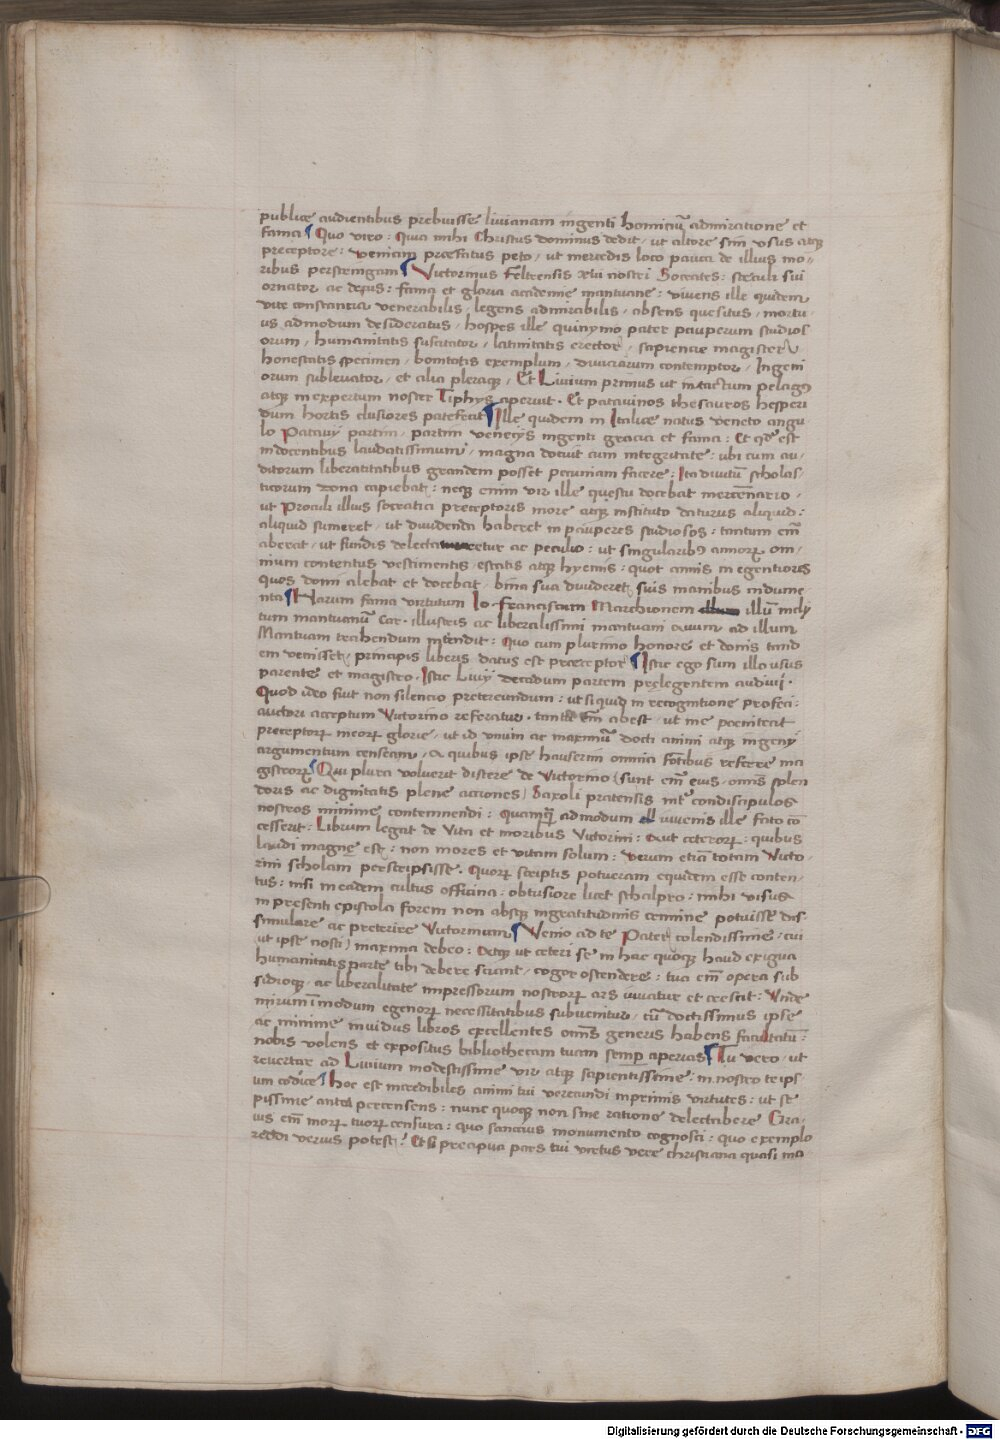 publice audientibus prebuisse liuianam ingenti hominiū admiratione et
fama Quo viro: Quia mihi Christus dominus dedit, ut altore sim usus atqꝫ
preceptore: veniam præfatus peto, ut mercedis loco pauca de illius mo-
ribus perstringam Victorinus Feltrensis ævi nostri Socrates: seculi sui
ornator ac decus: fama et gloria academie mantuane: vivens ille quidem
vite constantia venerabilis, legens admirabilis, absens quesitus, mortu-
us admodum desideratus, hospes ille quinymo pater pauperum studios
orum, humanitatis suscitator, latinitatis erector, sapiencie magister
honestatis specimen, bonitatis exemplum, diuiciarum contemptor, Ingeni
orum subleuator, et alia pleraqꝫ, Et Liuium primus ut intactum pelagꝰ
atqꝫ inexpertum noster Tiphys aperuit. Et patauinos thesauros hesperi
dum hortis clusiores patefecit Ille quidem in Italice natus veneto angu
lo Patauij partim, partim venecijs ingenti gracia et fama: Et qd est
in docentibus laudatissimum, magna docuit cum integritate: ubi cum au-
ditorum liberalitatibus grandem posset pecuniam facere: Ita diuitū scholas-
ticorum dona capiebat: neqꝫ enim vir ille questu docebat mercēnario,
ut Proculi illius socratici preceptoris more atqꝫ instituto daturus aliquid:
aliquid sumeret, ut diuidenda haberet in pauperes studiosos: tantum em̄
aberat, ut fundis delectaretur ac peculio: ut singularibꝰ annorꝫ om-
nium contentus vestimentis, estatis atqꝫ hyemis: quot annis in egentiores
quos domi alebat et docebat, bina sua diuideret suis manibus indume
nta Harum fama virtutum Io. Franciscum Marchionem illū incly
tum mantuanū Car. illustris ac liberalissimi mantuani auum ad illum
Mantuam trahendum intendit: Quo cum plurimo honore et donis tand
em venisset, principis liberis datus est preceptor Istic ego sum illo usus
parente et magistro. Istic Liuij decadum partem prelegentem audiui.
Quod ideo fuit non silencio pretereundum: ut si quid in recognitione profeci:
auctori acceptum Victorino referatur. tantū em̄ abest, ut me poeniteat
preceptorꝫ meorꝫ glorie, ut id unum ac maximū docti animi atqꝫ ingenij
argumentum censeam, a quibus ipse hauserim omnia fontibus referre ma
gistrorꝫ Qui plura voluerit discere de Victorino (sunt em̄ eius, omēs splen
doris ac dignitatis plene acciones) Saxoli pratensis intꝰ condiscipulos
nostros minime contemnendi: Quamqꝫ admodum iuvenis ille fato cō
cesserit: Librum legat de Vita et moribus Victorini: Aut ceterorꝫ: quibus
laudi magne est: non mores et vitam solum: verum etiā totam Victo-
rini scholam perscripsisse. Quorꝫ scriptis potueram equidem esse conten-
tus: nisi in eadem cultus officina: obtusiore licet schalpro: mihi visus
in presenti epistola forem non absqꝫ ingratitudinis crimine potuisse dis
simulare ac preterire Victorinum Venio ad te Pater colendissime, cui
(ut ipse nosti) maxima debeo: Atqꝫ ut ceteri se in hac quoqꝫ haud exigua
humanitatis parte tibi debere sciant, cogor ostendere: tua em̄ opera sub
sidioqꝫ, ac liberalitate impressorum nostrorꝫ ars iuuatur et crescit: Unde
mirum ī modum egenorꝫ necessitatibus subuenitur, cū doctissimus ipse
ac minime inuidus libros excellentes omīs generis habens facultatū:
nobis volens et expositus bibliothecam tuam semper aperias Tu vero, ut
revertar ad Liuium modestissime vir atqꝫ sapientissime, in nostro te ips-
um codice Hoc est incredibiles animi tui verecundi inprimis virtutes: ut se
pissime antea percensens: nunc quoqꝫ non sine ratione delectabere Gra-
uis em̄ morꝫ tuorꝫ censura: quo sanctius monumento cognosci: quo exemplo
reddi verius potest? Et si precipua pars tui virtus vere christiana quasi ma-
Digitalisierung gefördert durch die Deutsche Forschungsgemeinschaft - DFG